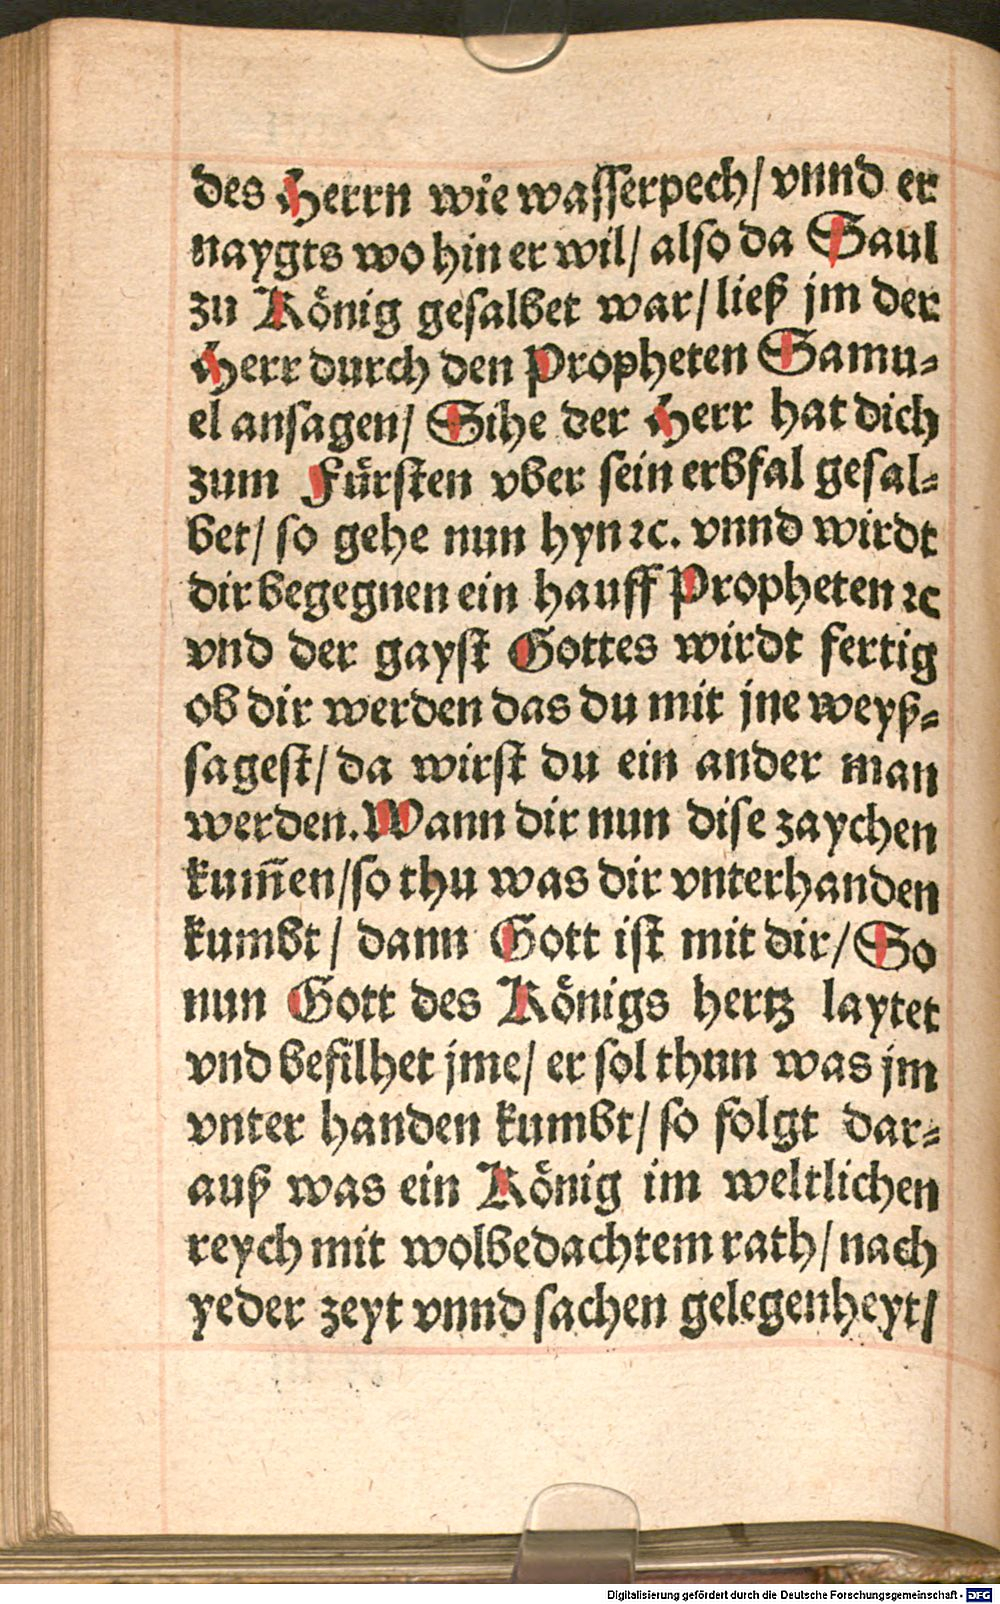 des Herrn wie wasserpech/ vnnd er
naygts wo hin er wil/ also da Saul
zu König gesalbet war/ ließ jm der
Herr durch den Propheten Samu⸗
el ansagen/ Sihe der Herr hat dich
zum Fürsten vber sein erbfal gesal⸗
bet/ so gehe nun hyn ꝛc. vnnd wirdt
dir begegnen ein hauff Propheten ꝛc
vnd der gayst Gottes wirdt fertig
ob dir werden das du mit jne weyß⸗
sagest/ da wirst du ein ander man
werden. Wann dir nun dise zaychen
kum̄en/ so thu was dir vnterhanden
kumbt/ dann Gott ist mit dir/ So
nun Gott des Königs hertz laytet
vnd befilhet jme/ er sol thun was jm
vnter handen kumbt/ so folgt dar⸗
auß was ein König im weltlichen
reych mit wolbedachtem rath/ nach
yeder zeyt vnnd sachen gelegenheyt/
Digitalisierung gefördert durch die Deutsche Forschungsgemeinschaft - DFG